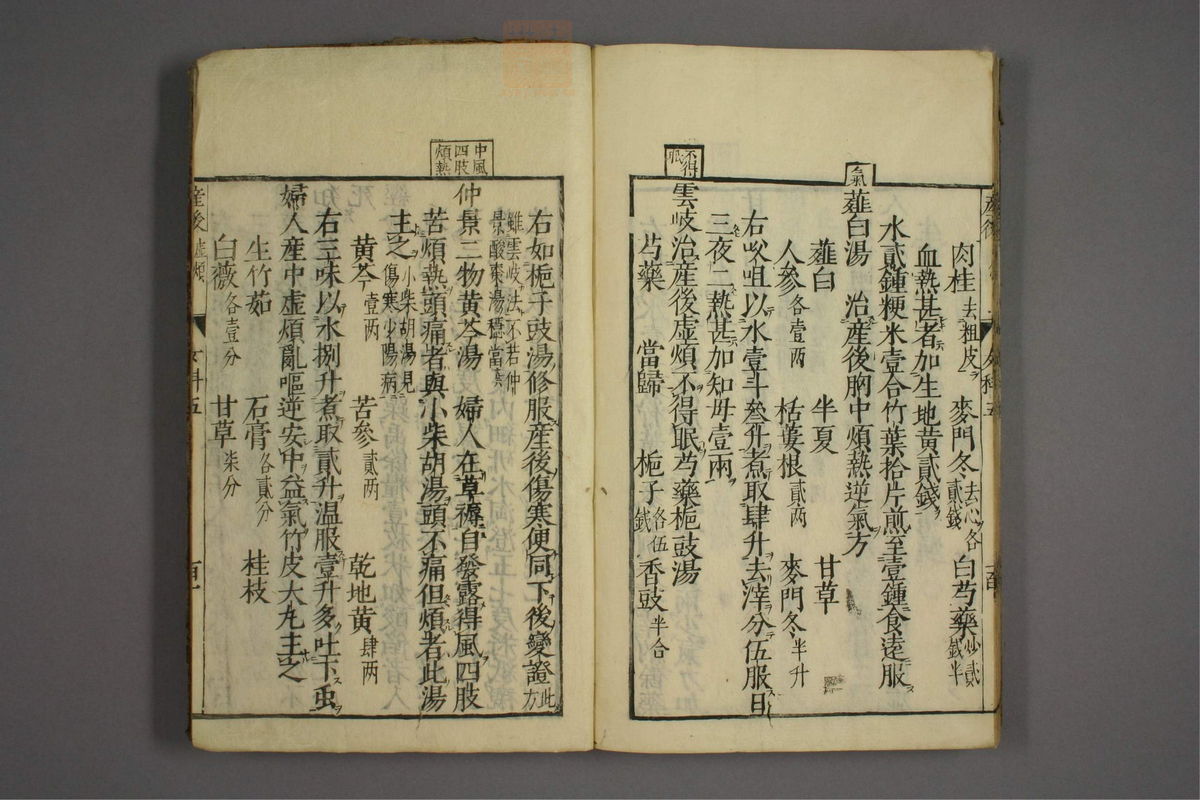 肉桂去粗皮 麥門冬去心各貳錢 白芍藥炒貳錢半
血熱甚者加生地黃貳錢
水貳鍾粳米壹合竹葉拾片煎至壹鍾食遠服
氣
薤白湯 治產後胸中煩熱逆氣方
薤白 半夏 甘草
人參各壹兩 栝蔞根貳兩 麥門冬半升
右㕮咀以水壹斗叄升煮取肆升去滓分伍服日
三夜二熱甚加知母壹兩
不得眠
雲岐治產後虛煩不得眠芍藥梔豉湯
芍藥 當歸 梔子各伍錢 香豉半合
右如梔子豉湯修服產後傷寒便同下後變證此方
雖雲岐法不若仲景酸棗湯穩當
中風四肢煩熱
仲景三物黃芩湯 婦人在草褥自發露得風四肢
苦煩熱頭痛者與小柴胡湯頭不痛但煩者此湯
主之小柴胡湯見傷寒少陽病
黃芩壹兩 苦參貳兩 乾地黃肆兩
右三味以水捌升煮取貳升溫服壹升多吐下虫
婦人產中虛煩亂嘔逆安中益氣竹皮大丸主之
生竹茹 石膏各貳分 桂枝
白薇各壹分 甘草柒分
產後虛煩 女科五